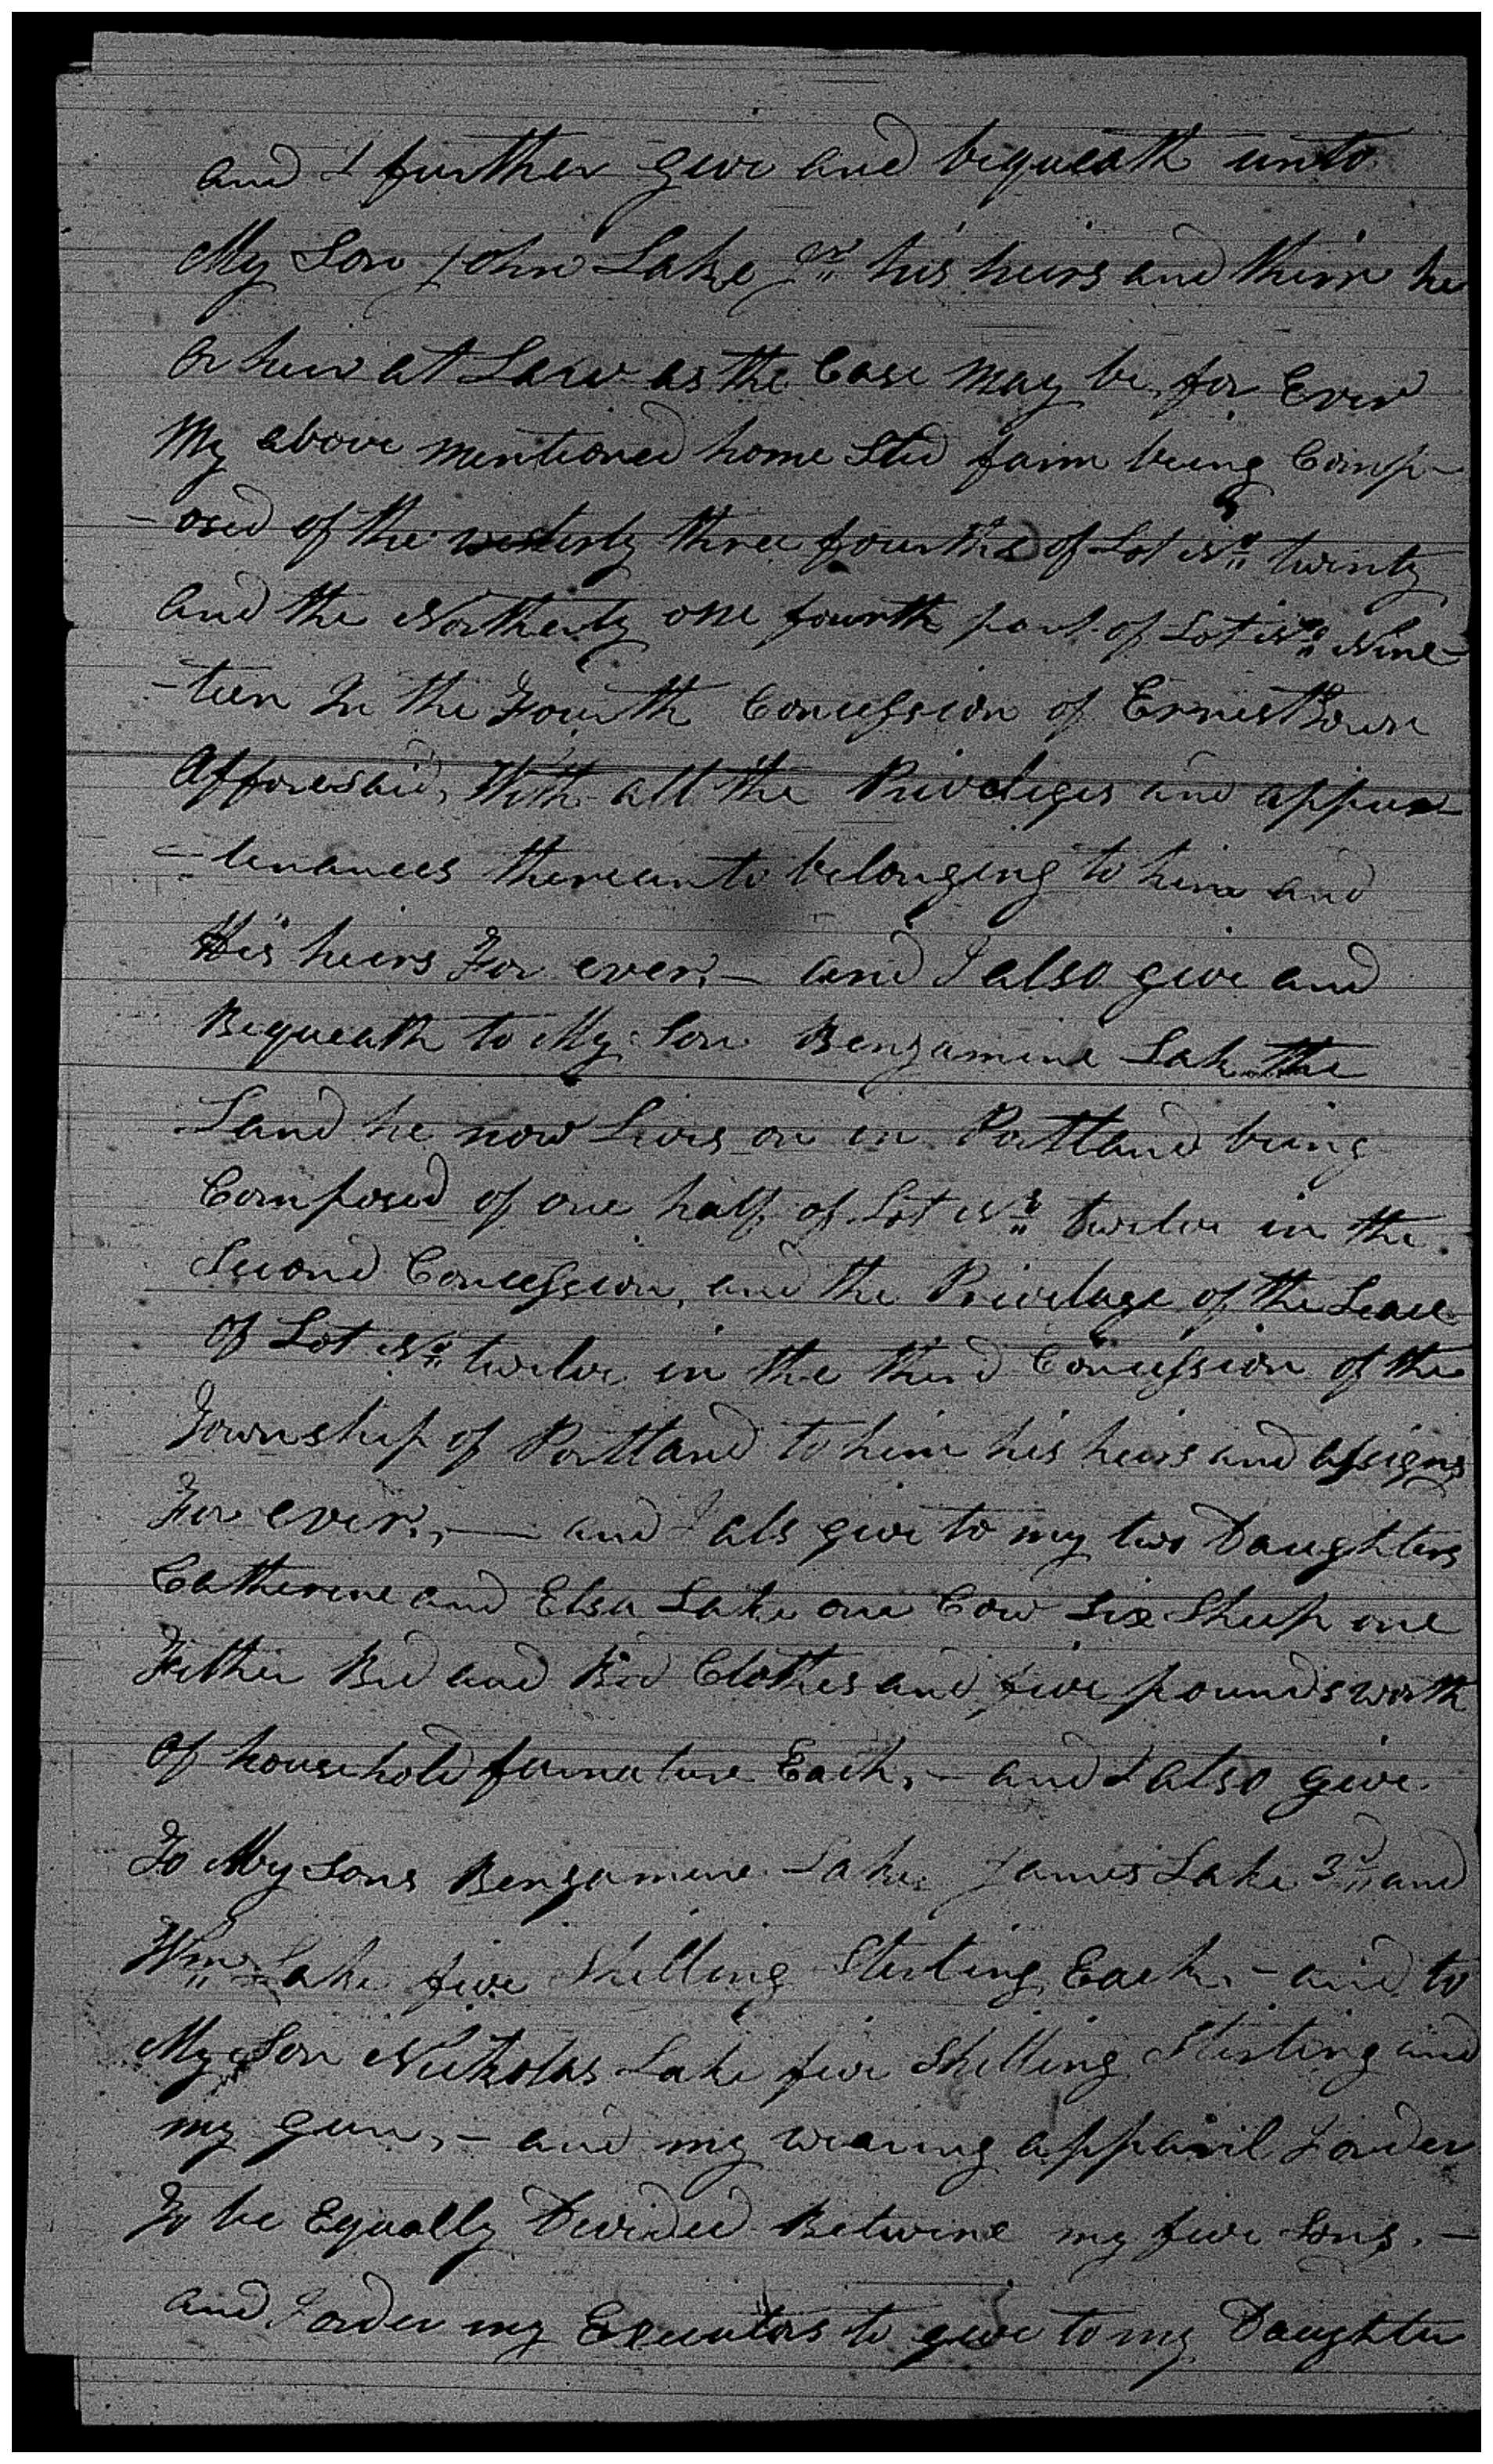 and I further give and bequeath unto
My Son John Lake Jnr his heirs and their he
or heir at Law as the Case may be, for Ever
My above mentioned home Sted farm being Comp-
-osed of the westerly three fourths of Lot No twenty
and the Northerly one fourth part of Lot No Nine-
-teen In the Fourth Concession of Ernesttown
Afforesaid, With all the Priveliges and appur
-tenances thereunto belonging to him and
His heirs For ever,- and I also give and
Bequeath to My Son Benjamine Lake the
Land he now Lives on in Portland being
Composed of one half of Lot No twelve in the
Second Concession, and the Privelage of the Lease
of Lot No twelve in the third Concession of the
Township of Portland to him his heirs and assigns
For ever,- and I als give to my two Daughters
Catherine and Elsa Lake one Cow Six Sheep one
Fether Bed and Bed Clothes and five pounds worth
of household furnature Each,- and I also give
To My Sons Benjamine Lake James Lake 3rd and
Wm Lake five Shilling Sterling Each,- and to
My Son Nickolas Lake five Shilling Sterling and
my gun,- and my wearing apparil I order
To be Equally Devided Betwine my five Sons,-
and I order my Executors to give to my Daughter